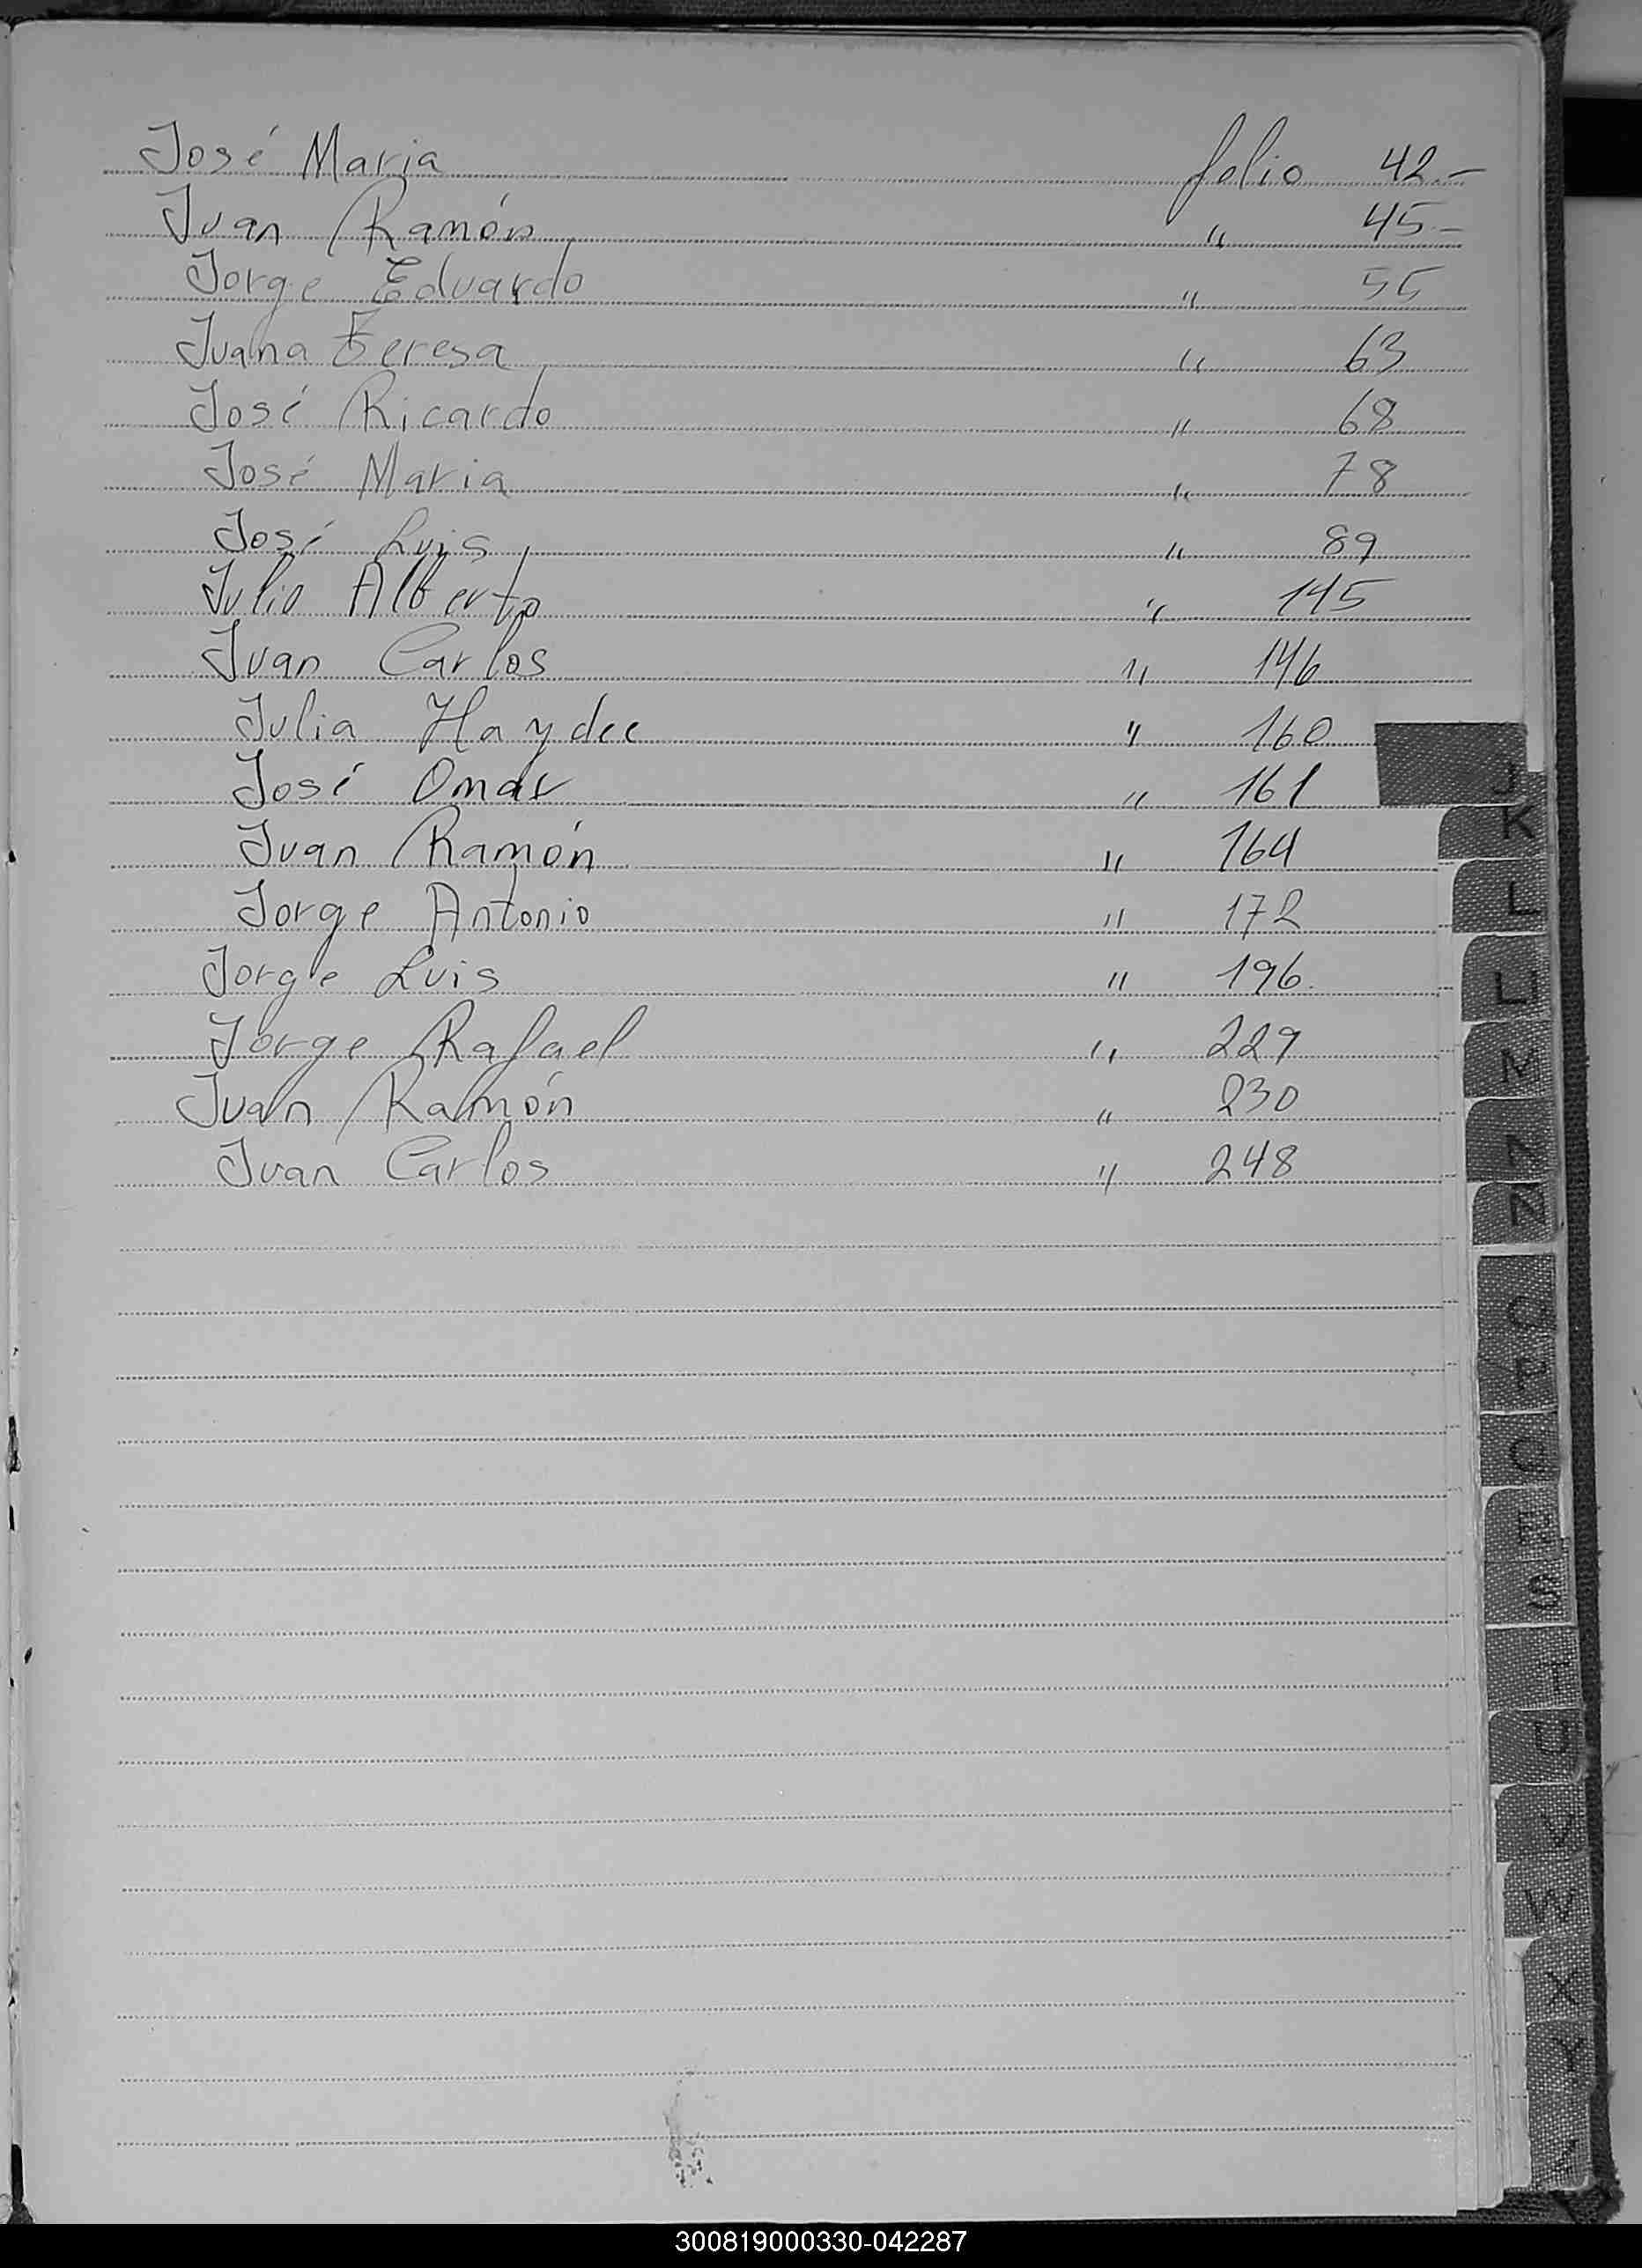 José Maria folio 42.-
Juan Ramón " 45.-
Jorge Eduardo " 55
Juana Teresa " 63
José Ricardo " 68
José Maria " 78
José Luis " 89
Julio Alberto " 145
Juan Carlos " 146
Julia Haydee " 160
José Omar " 161
Juan Ramón " 164
Jorge Antonio " 172
Jorge Luis " 196.
Jorge Rafael " 229
Juan Ramón " 230
Juan Carlos " 248
J
K
L
LL
M
N
Ñ
O
P
Q
R
S
T
U
V
W
X
Y
300819000330-042287